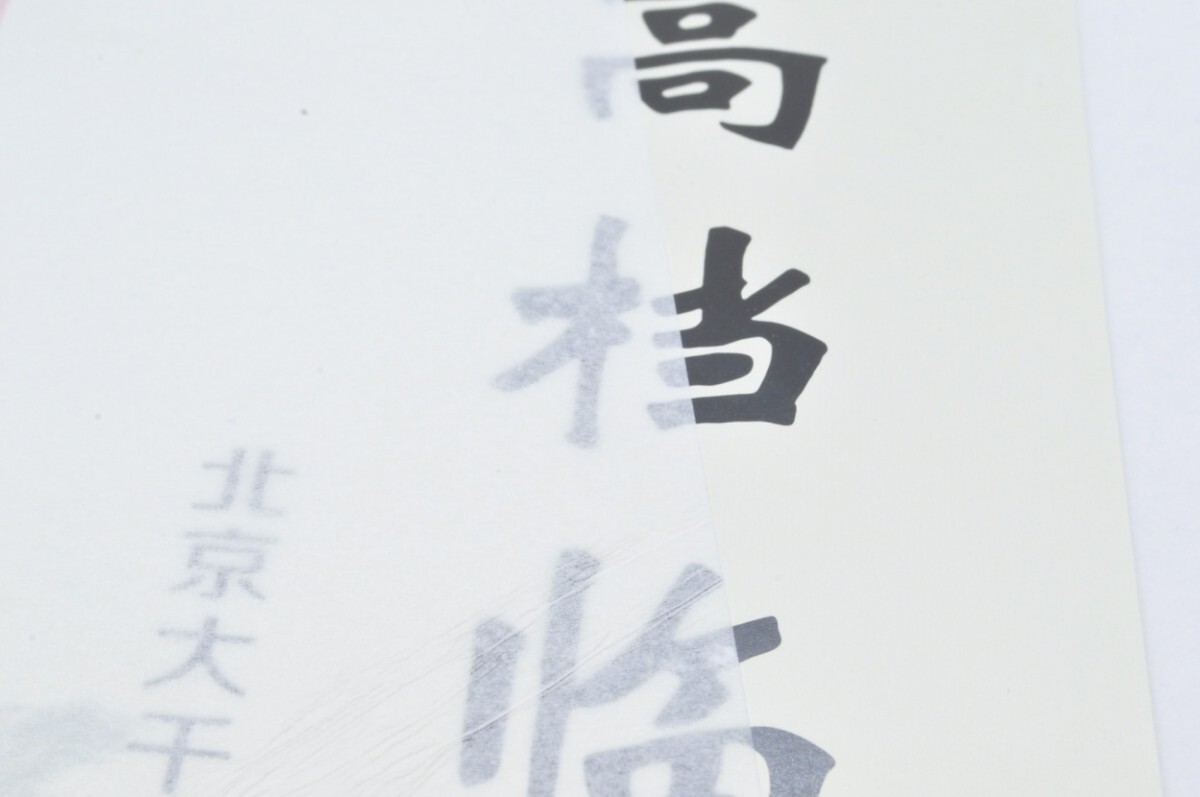 高档临
北京大千